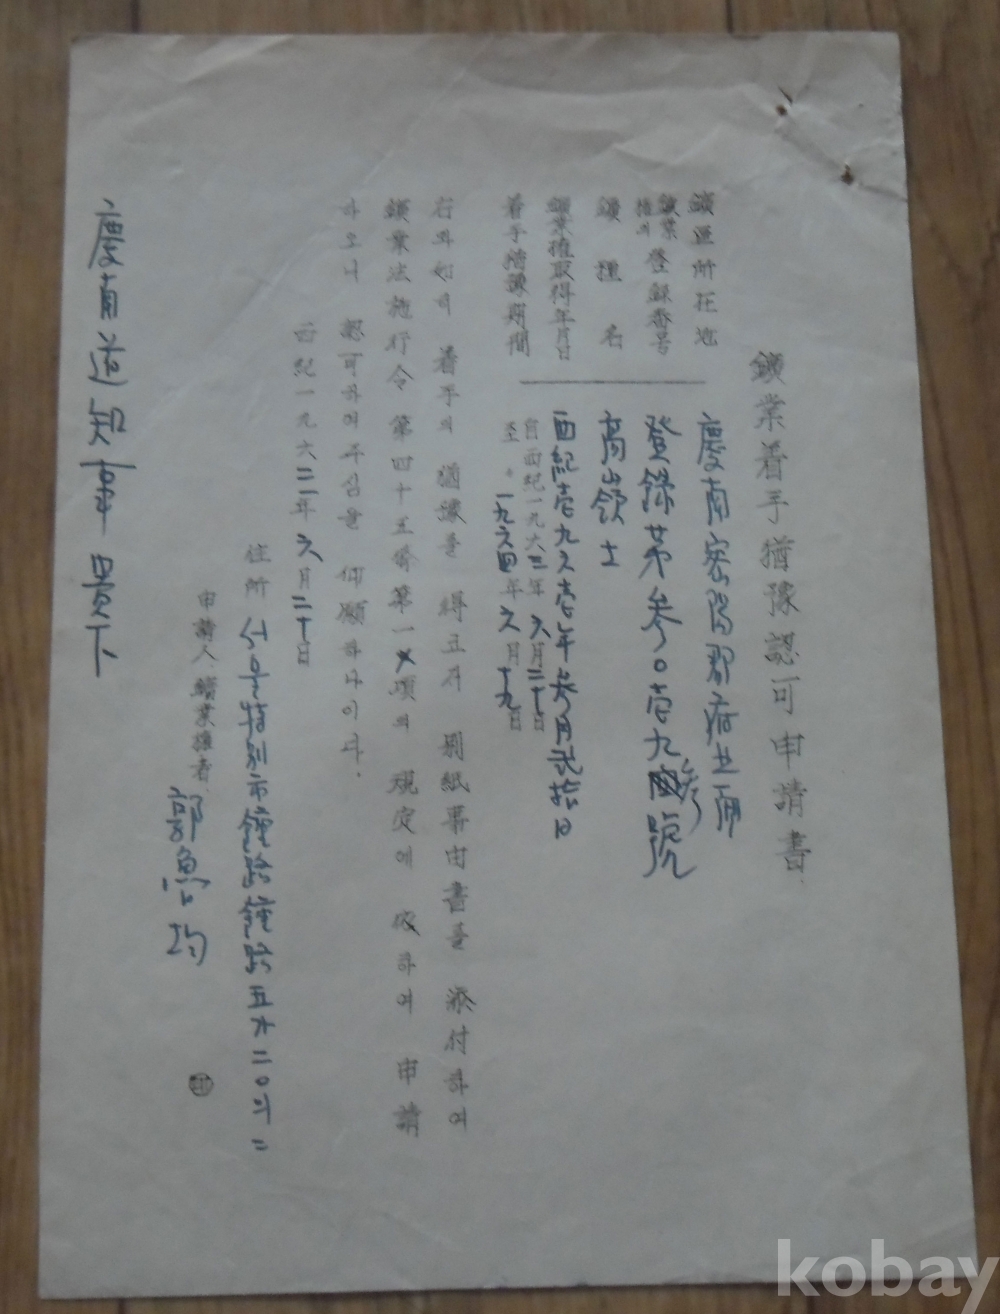 鑛業着手猶豫認可申請書
鑛區所在地 慶南密陽郡府北面
鑛業權의 登錄番号 登錄第參〇壱九參號
鑛種名 高嶺土
鑛業權取得年月日 西紀壱九六壱年參月貳拾日
着手猶豫期間 自西紀一九六三年六月二十日
至 〃 一九六四年六月十九日
右와如히 着手의 猶豫를 得코저 別紙事由書를 添付하여
鑛業法施行令 第四十五條第一項의 規定에 依하여 申請
하오니 認可하여주심을 仰願하나이다.
西紀一九六三年六月二十日
住所 서울特別市鍾路鍾路五가二〇의二
申請人 鑛業權者 郭魯均 印
慶南道知事貴下
kobay